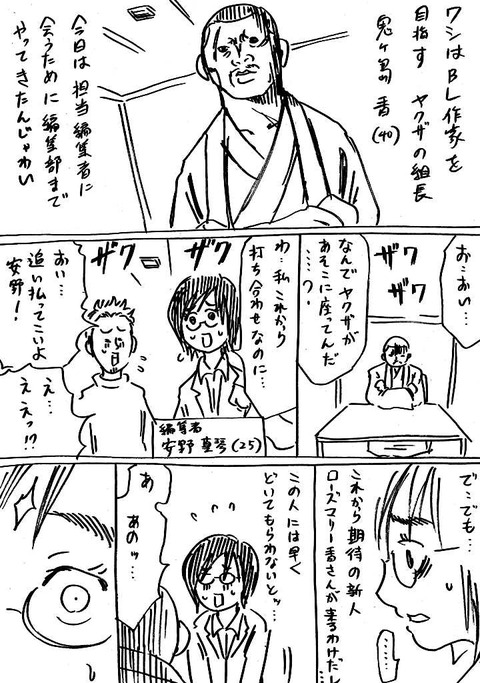 ワシはBL作家を
目指す ヤクザの組長
鬼ヶ島 香
(40)
今日は 担当編集者に
会うために 編集部まで
やってきたんじゃわい
お…おい…
なんでヤクザが
あそこに座ってんだ
……?
ザワ
ザワ
わ…私これから
打ち合わせなのに…
ザワ
編集者
安野真琴(25)
ザワ
おい…
追い払ってこいよ
安野!
え…
ええっ!?
で…でも…
これから期待の新人
ローズマリー香さんが来るわけだし
……
この人には早く
どいてもらわないとッ…
あ
あのッ…
……